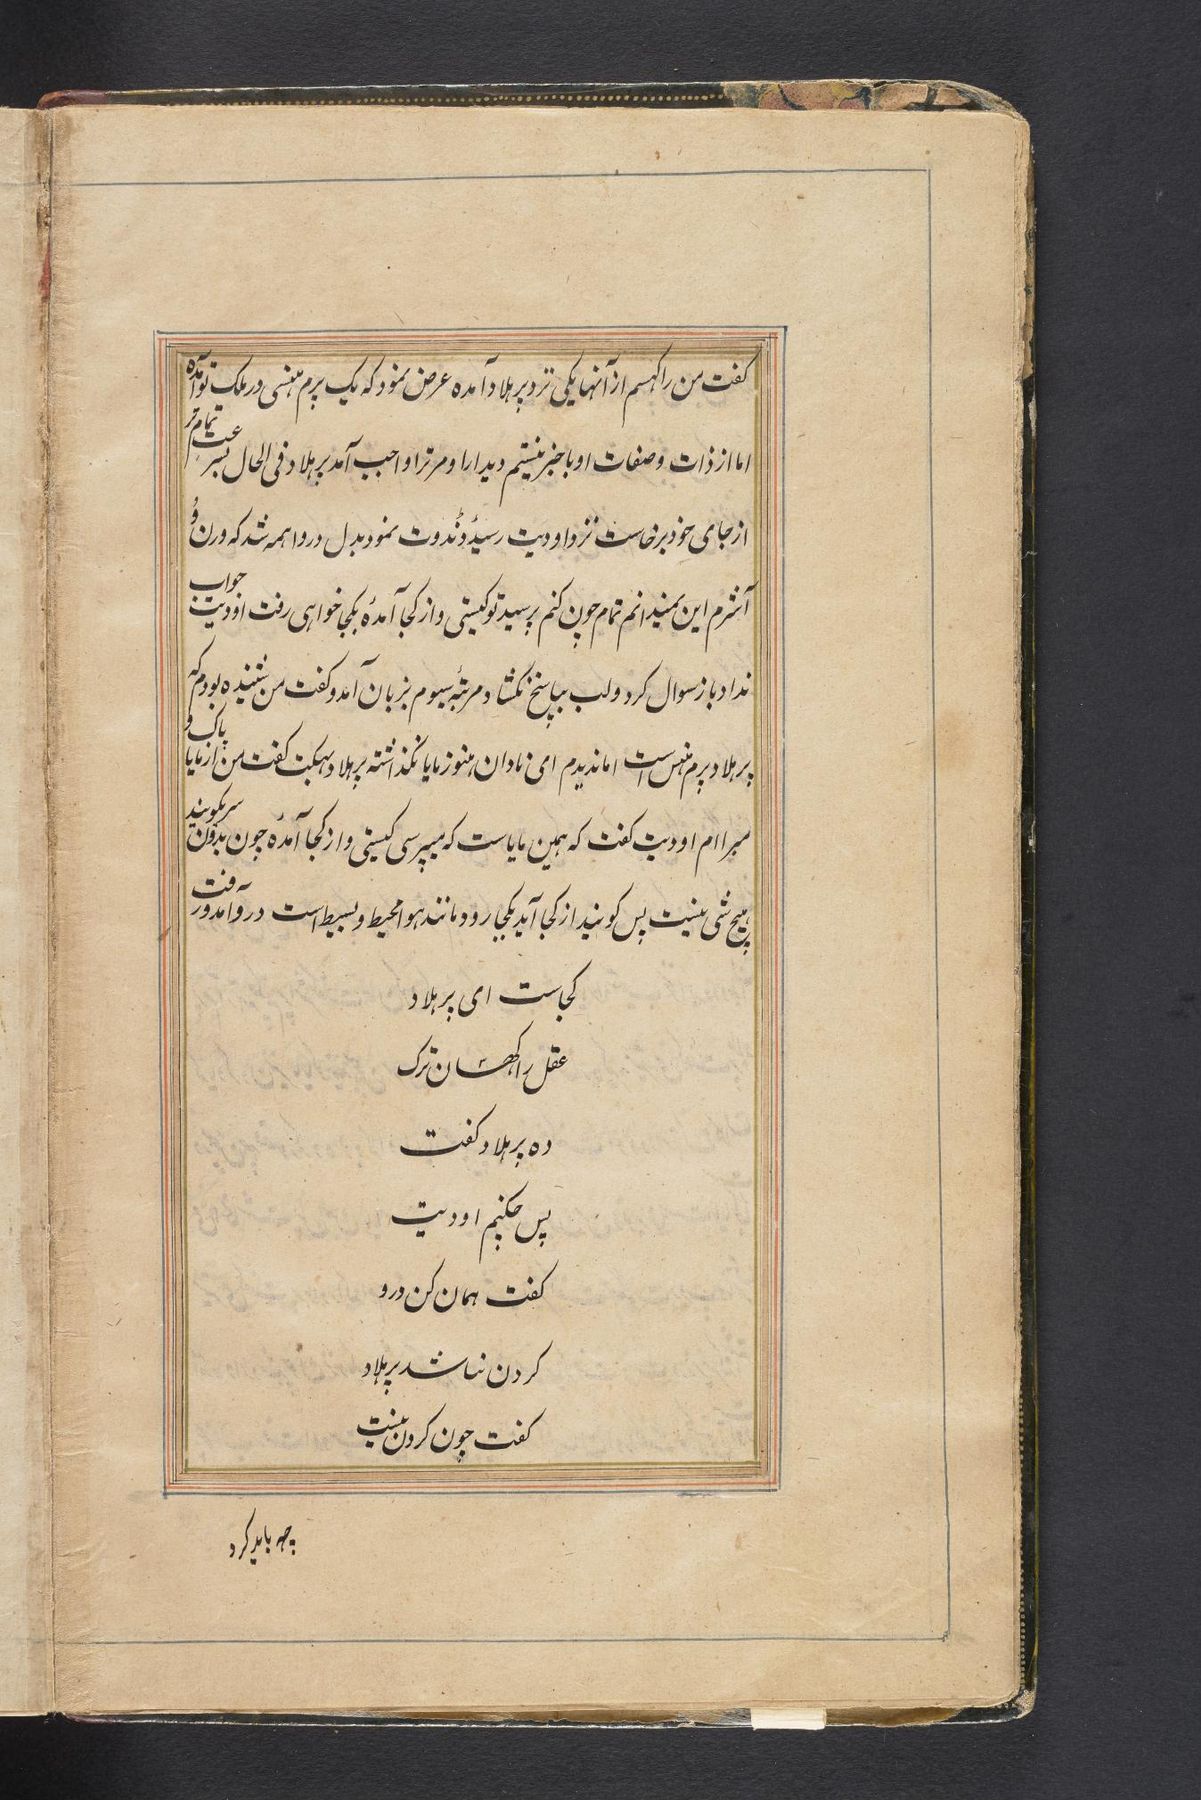 گفت من راکهسم از آنها یکی نزد پرهلاد آمده عرض نمود که یک پرم هنسی در ملک تو آمده
اما از ذات و صفات او باخبر نیستم دیدار او مر ترا واجب آمد پرهلاد فی الحال بسرعت تمام تر
از جای خود برخاست نزد اودیت رسیده دندوت نمود بدل در واهمه شد که ورن و
آشرم این نمیدانم تمام چون کنم پرسید تو کیستی و از کجا آمدهٔ بکجا خواهی رفت اودیت جواب
نداد باز سوال کرد و لب بپاسخ نکشاد مرتبهٔ سیوم بزبان آمد و گفت من شنیده بودم که
پرهلاد پرم هنس است اما ندیدم ای نادان هنوز مایا نگذاشته پرهلاد بهکت گفت من از مایا پاک و
مبراام اودیت گفت که همین مایاست که میپرسی کیستی و از کجا آمدهٔ چون بدون سریکویند
هیچ شی نیست پس گویند از کجا آید بکجا رود مانند هوا محیط و بسیط است در و آمدورفت
کجاست ای پرهلاد
عقل راکهسان ترک
ده پرهلاد گفت
پس چکنیم اودیت
گفت همان کن درو
کردن نباشد پرهلاد
گفت چون کردن نیست
چه باید کرد